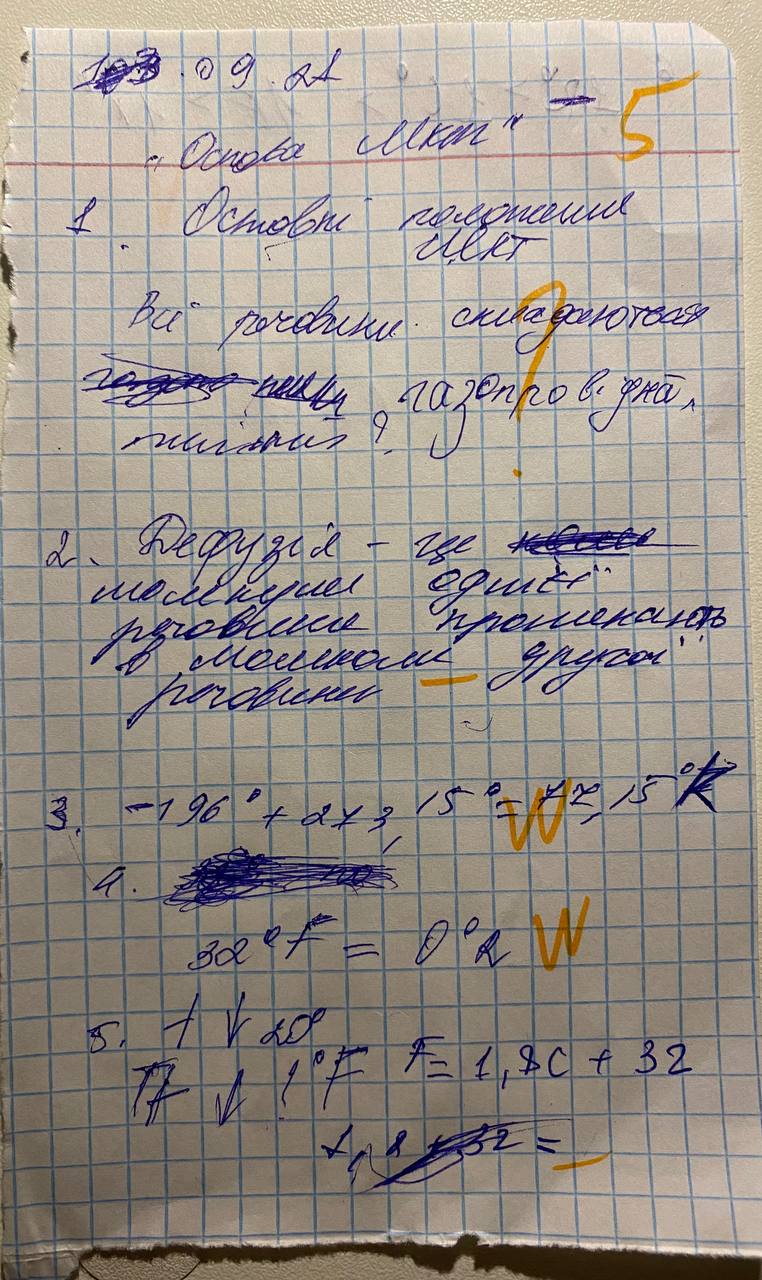 .09.21
5
„Основа Мкт"
1. Основні положення
МКТ
Всі речовини складаються
газопровідна,
?
2. Дефузія – це
молекули однієї
речовини проникають
в молеколи другої
речовини
3. -196° + 273,15° = 77,15°K
4.
32°F = 0°
5. t ↓ 20°
TF ↓ ?°F F = 1,8C + 32
1,8 + 32 =